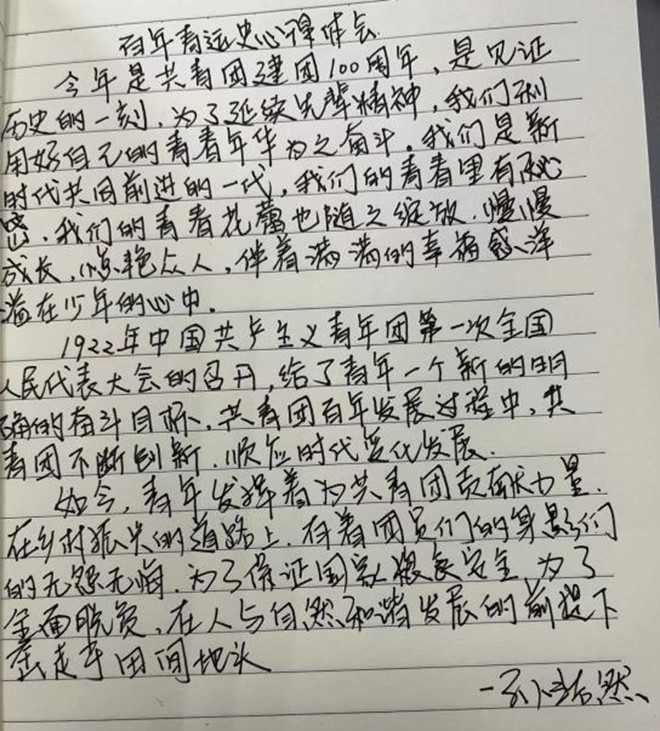 百年青运史心得体会
今年是共青团建团100周年,是见证
历史的一刻,为了延续先辈精神,我们利
用好自己的青春年华为之奋斗。我们是新
时代共同前进的一代,我们的青春里有秘
密,我们的青春花蕾也随之绽放,慢慢
成长,惊艳众人,伴着满满的幸福感洋
溢在少年的心中。
1922年中国共产主义青年团第一次全国
人民代表大会的召开,给了青年一个新的明
确的奋斗目标,共青团百年发展过程中,共
青团不断创新,顺应时代变化发展.
如今,青年发挥着为共青团贡献力量.
在乡村振兴的道路上,有着团员们的身影们
的无怨无悔,为了保证国家粮食安全 为了
全面脱贫,在人与自然和谐发展的前提下
走于田间地头